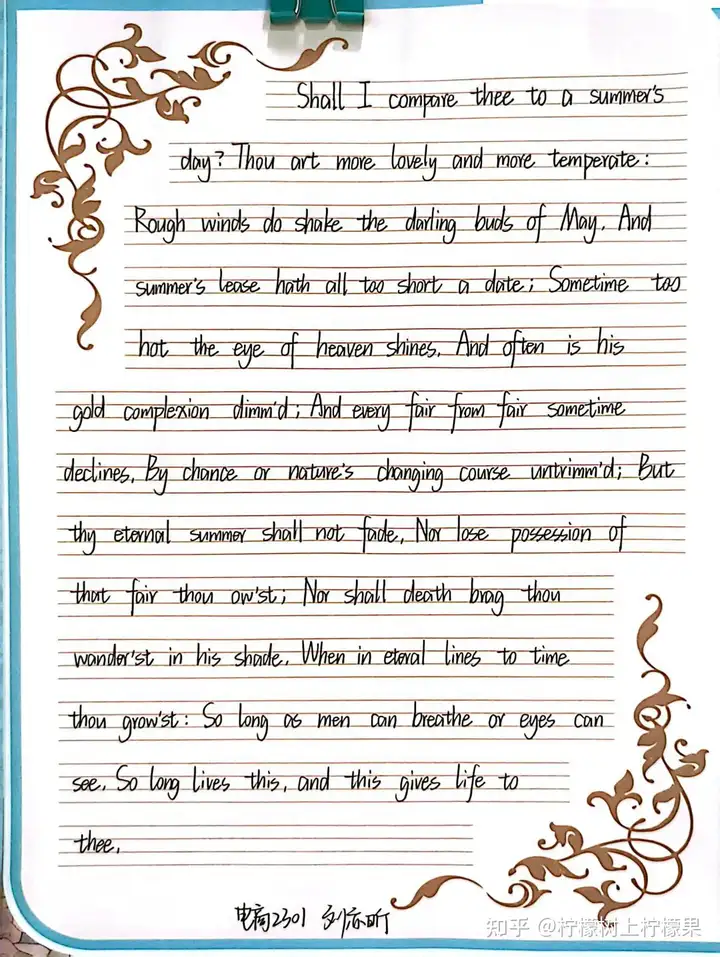 Shall I compare thee to a summer's
day? Thou art more lovely and more temperate:
Rough winds do shake the darling buds of May. And
summer's lease hath all too short a date; Sometime too
hot the eye of heaven shines. And often is his
gold complexion dimm'd; And every fair from fair sometime
declines. By chance or nature's changing course untrimm'd; But
thy eternal summer shall not fade. Nor lose possession of
that fair thou ow'st; Nor shall death brag thou
wander'st in his shade. When in eteral lines to time
thou grow'st: So long as men can breathe or eyes can
see. So long lives this, and this gives life to
thee.
电商2301 刘亦昕
知乎 @柠檬树上柠檬果